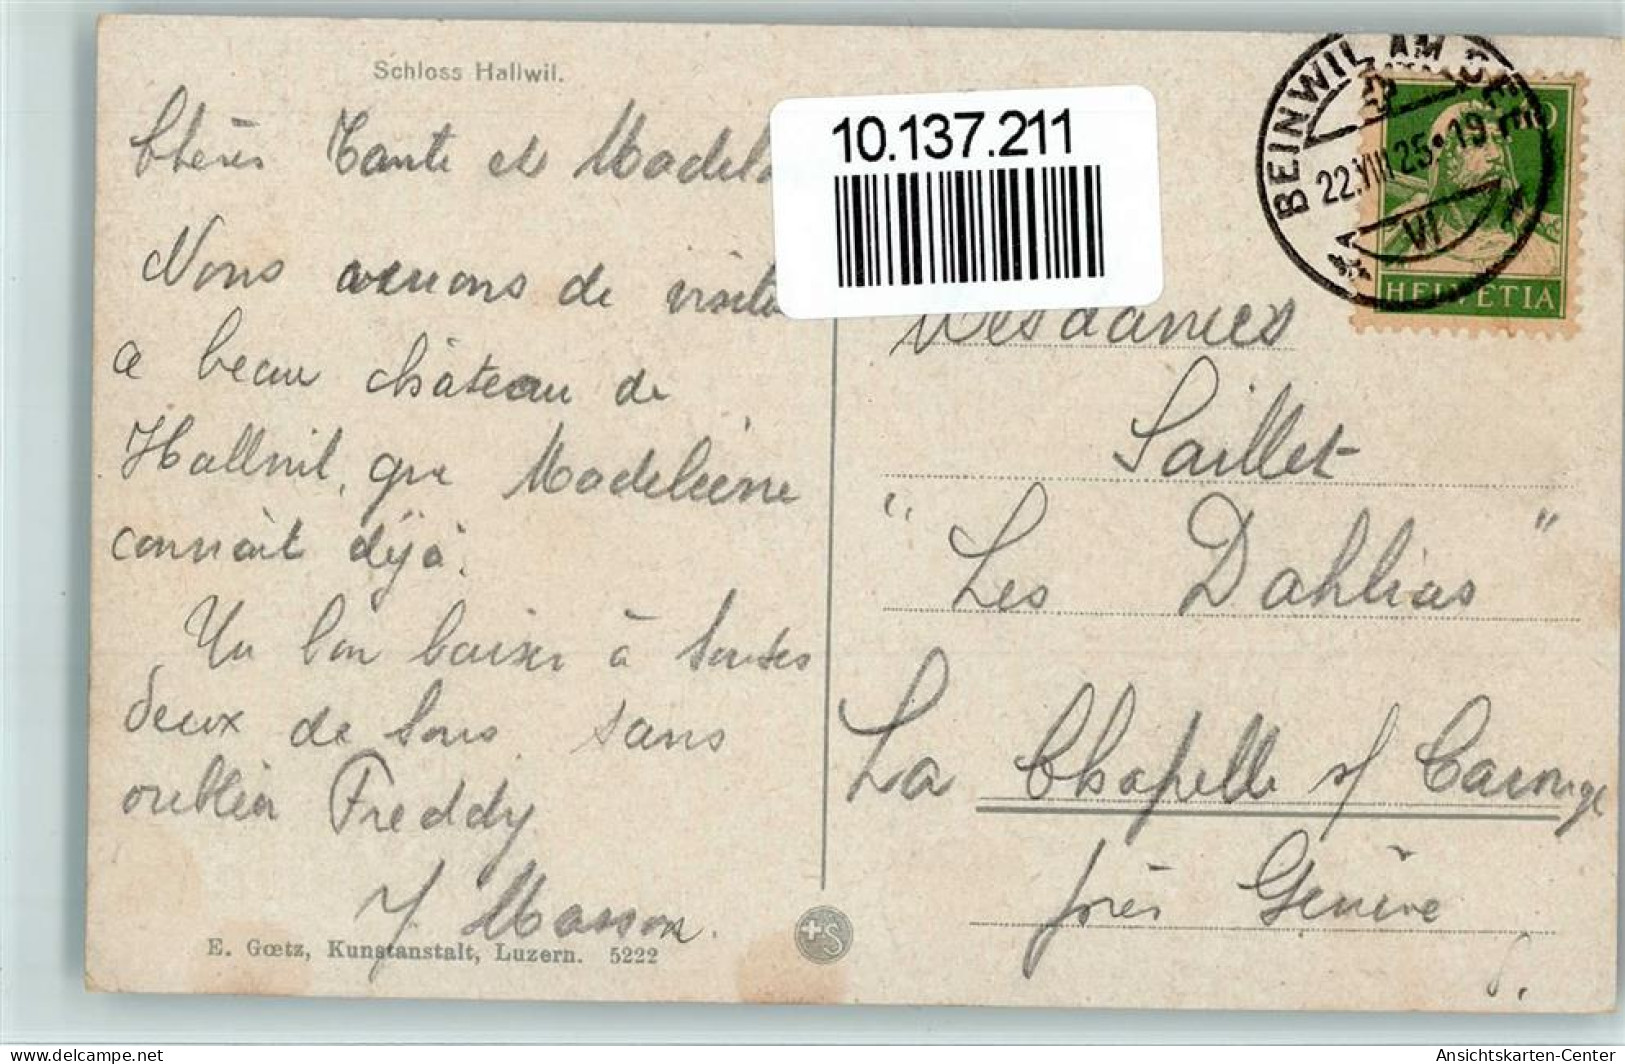 Schloss Hallwil.
Chères Tante et Madel
Nous venons de visite
ce beau château de
Hallwil, que Madeleine
connait déjà.
Un bon baiser à toutes
deux de tous sans
oublier Freddy
J. Masson.
E. Gœtz, Kunstanstalt, Luzern. 5222
+S
10.137.211
BEINWIL AM SEE
22.VIII 25.19
VI
HELVETIA
Mesdames
Saillet
"Les Dahlias"
La Chapelle s/ Carouge
près Genève
delcampe.net
Ansichtskarten-Center